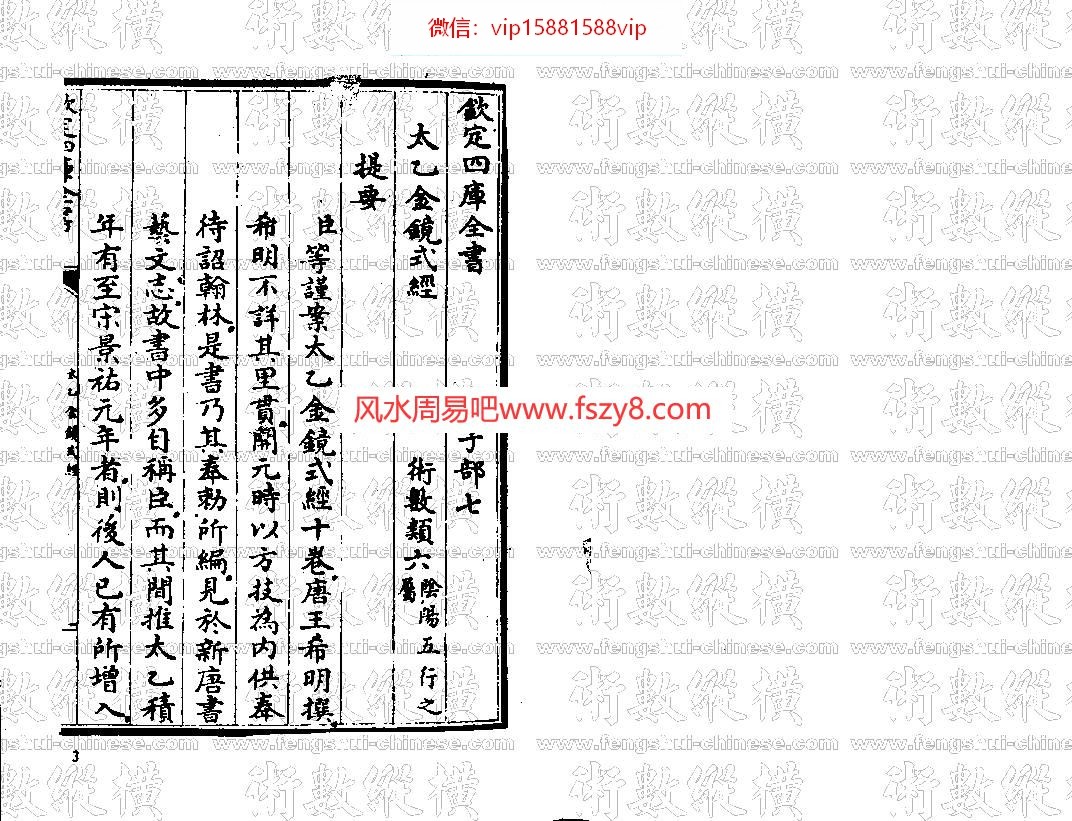 微信：vip15881588vip
欽定四庫全書 子部七
太乙金鏡式經 術數類六 陰陽五行之屬
提要
臣等謹案太乙金鏡式經十卷唐王希明撰
希明不詳其里貫開元時以方技為内供奉
待詔翰林是書乃其奉勅所編見於新唐書
藝文志故書中多自稱臣而其間推太乙積
年有至宋景祐元年者則後人已有所增入
欽定四庫全書
太乙金鏡式經
一
3
風水周易吧www.fszy8.com
術數縱橫
www.fengshui-chinese.com